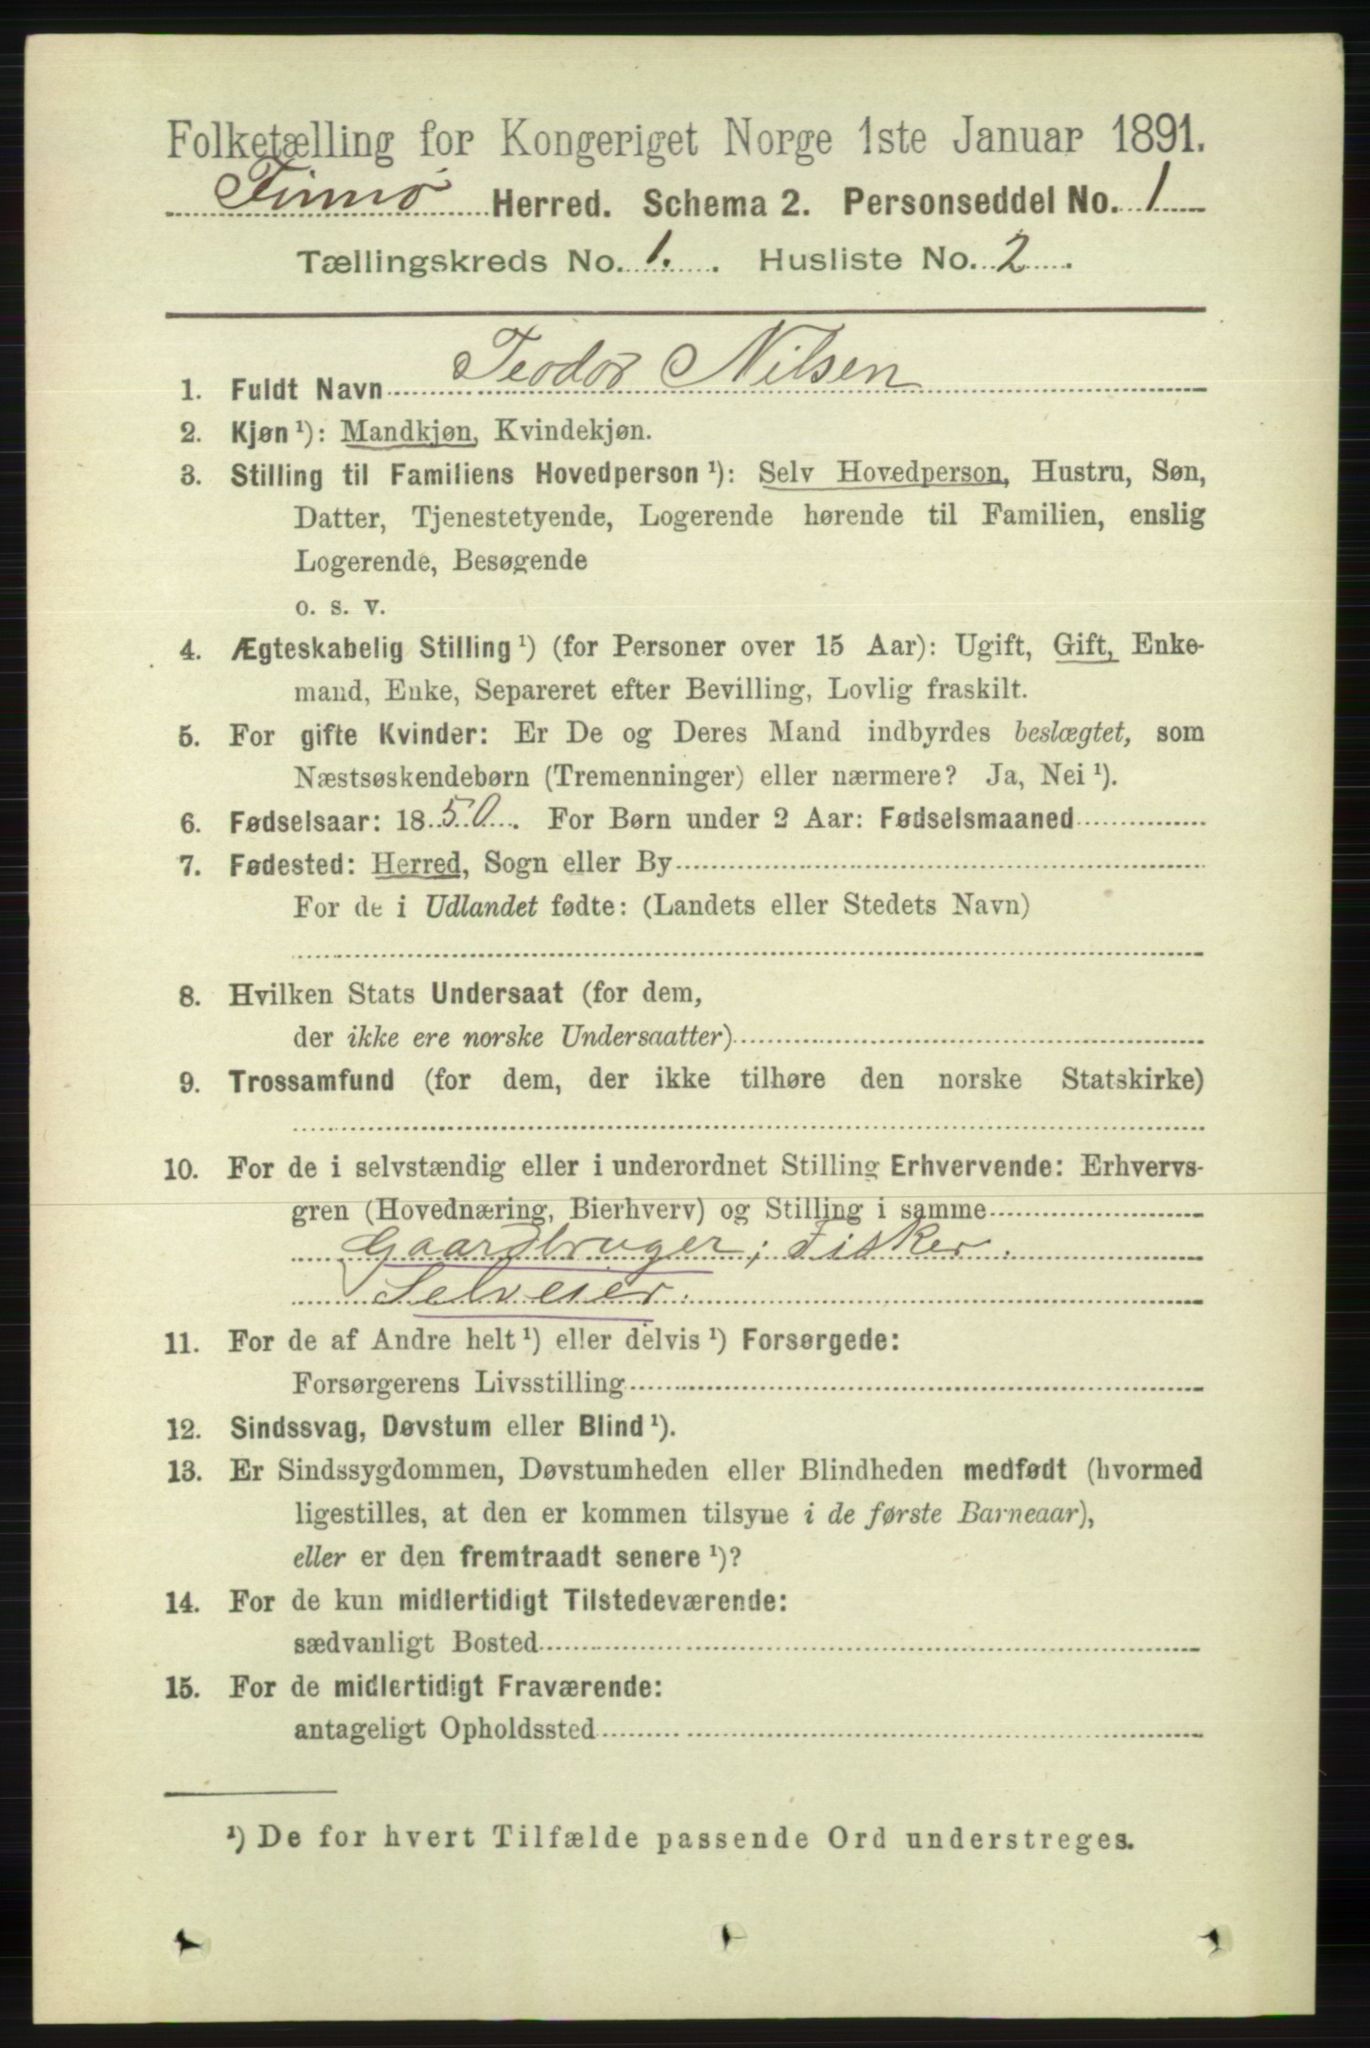 Folketælling for Kongeriget Norge 1ste Januar 1891.
Finnø Herred. Schema 2. Personseddel No. 1
Tællingskreds No. 1. Husliste No. 2.
1. Fuldt Navn Teodor Nilsen
2. Kjøn ¹): Mandkjøn, Kvindekjøn.
3. Stilling til Familiens Hovedperson ¹): Selv Hovedperson, Hustru, Søn,
Datter, Tjenestetyende, Logerende hørende til Familien, enslig
Logerende, Besøgende
o. s. v.
4. Ægteskabelig Stilling ¹) (for Personer over 15 Aar): Ugift, Gift, Enke-
mand, Enke, Separeret efter Bevilling, Lovlig fraskilt.
5. For gifte Kvinder: Er De og Deres Mand indbyrdes beslægtet, som
Næstsøskendebørn (Tremenninger) eller nærmere? Ja, Nei ¹).
6. Fødselsaar: 1850. For Børn under 2 Aar: Fødselsmaaned
7. Fødested: Herred, Sogn eller By
For de i Udlandet fødte: (Landets eller Stedets Navn)
8. Hvilken Stats Undersaat (for dem,
der ikke ere norske Undersaatter)
9. Trossamfund (for dem, der ikke tilhøre den norske Statskirke)
10. For de i selvstændig eller i underordnet Stilling Erhvervende: Erhvervs-
gren (Hovednæring, Bierhverv) og Stilling i samme
Gaardbruger; Fisker.
Selveier.
11. For de af Andre helt ¹) eller delvis ¹) Forsørgede:
Forsørgerens Livsstilling
12. Sindssvag, Døvstum eller Blind ¹).
13. Er Sindssygdommen, Døvstumheden eller Blindheden medfødt (hvormed
ligestilles, at den er kommen tilsyne i de første Barneaar),
eller er den fremtraadt senere ¹)?
14. For de kun midlertidigt Tilstedeværende:
sædvanligt Bosted
15. For de midlertidigt Fraværende:
antageligt Opholdssted
¹) De for hvert Tilfælde passende Ord understreges.